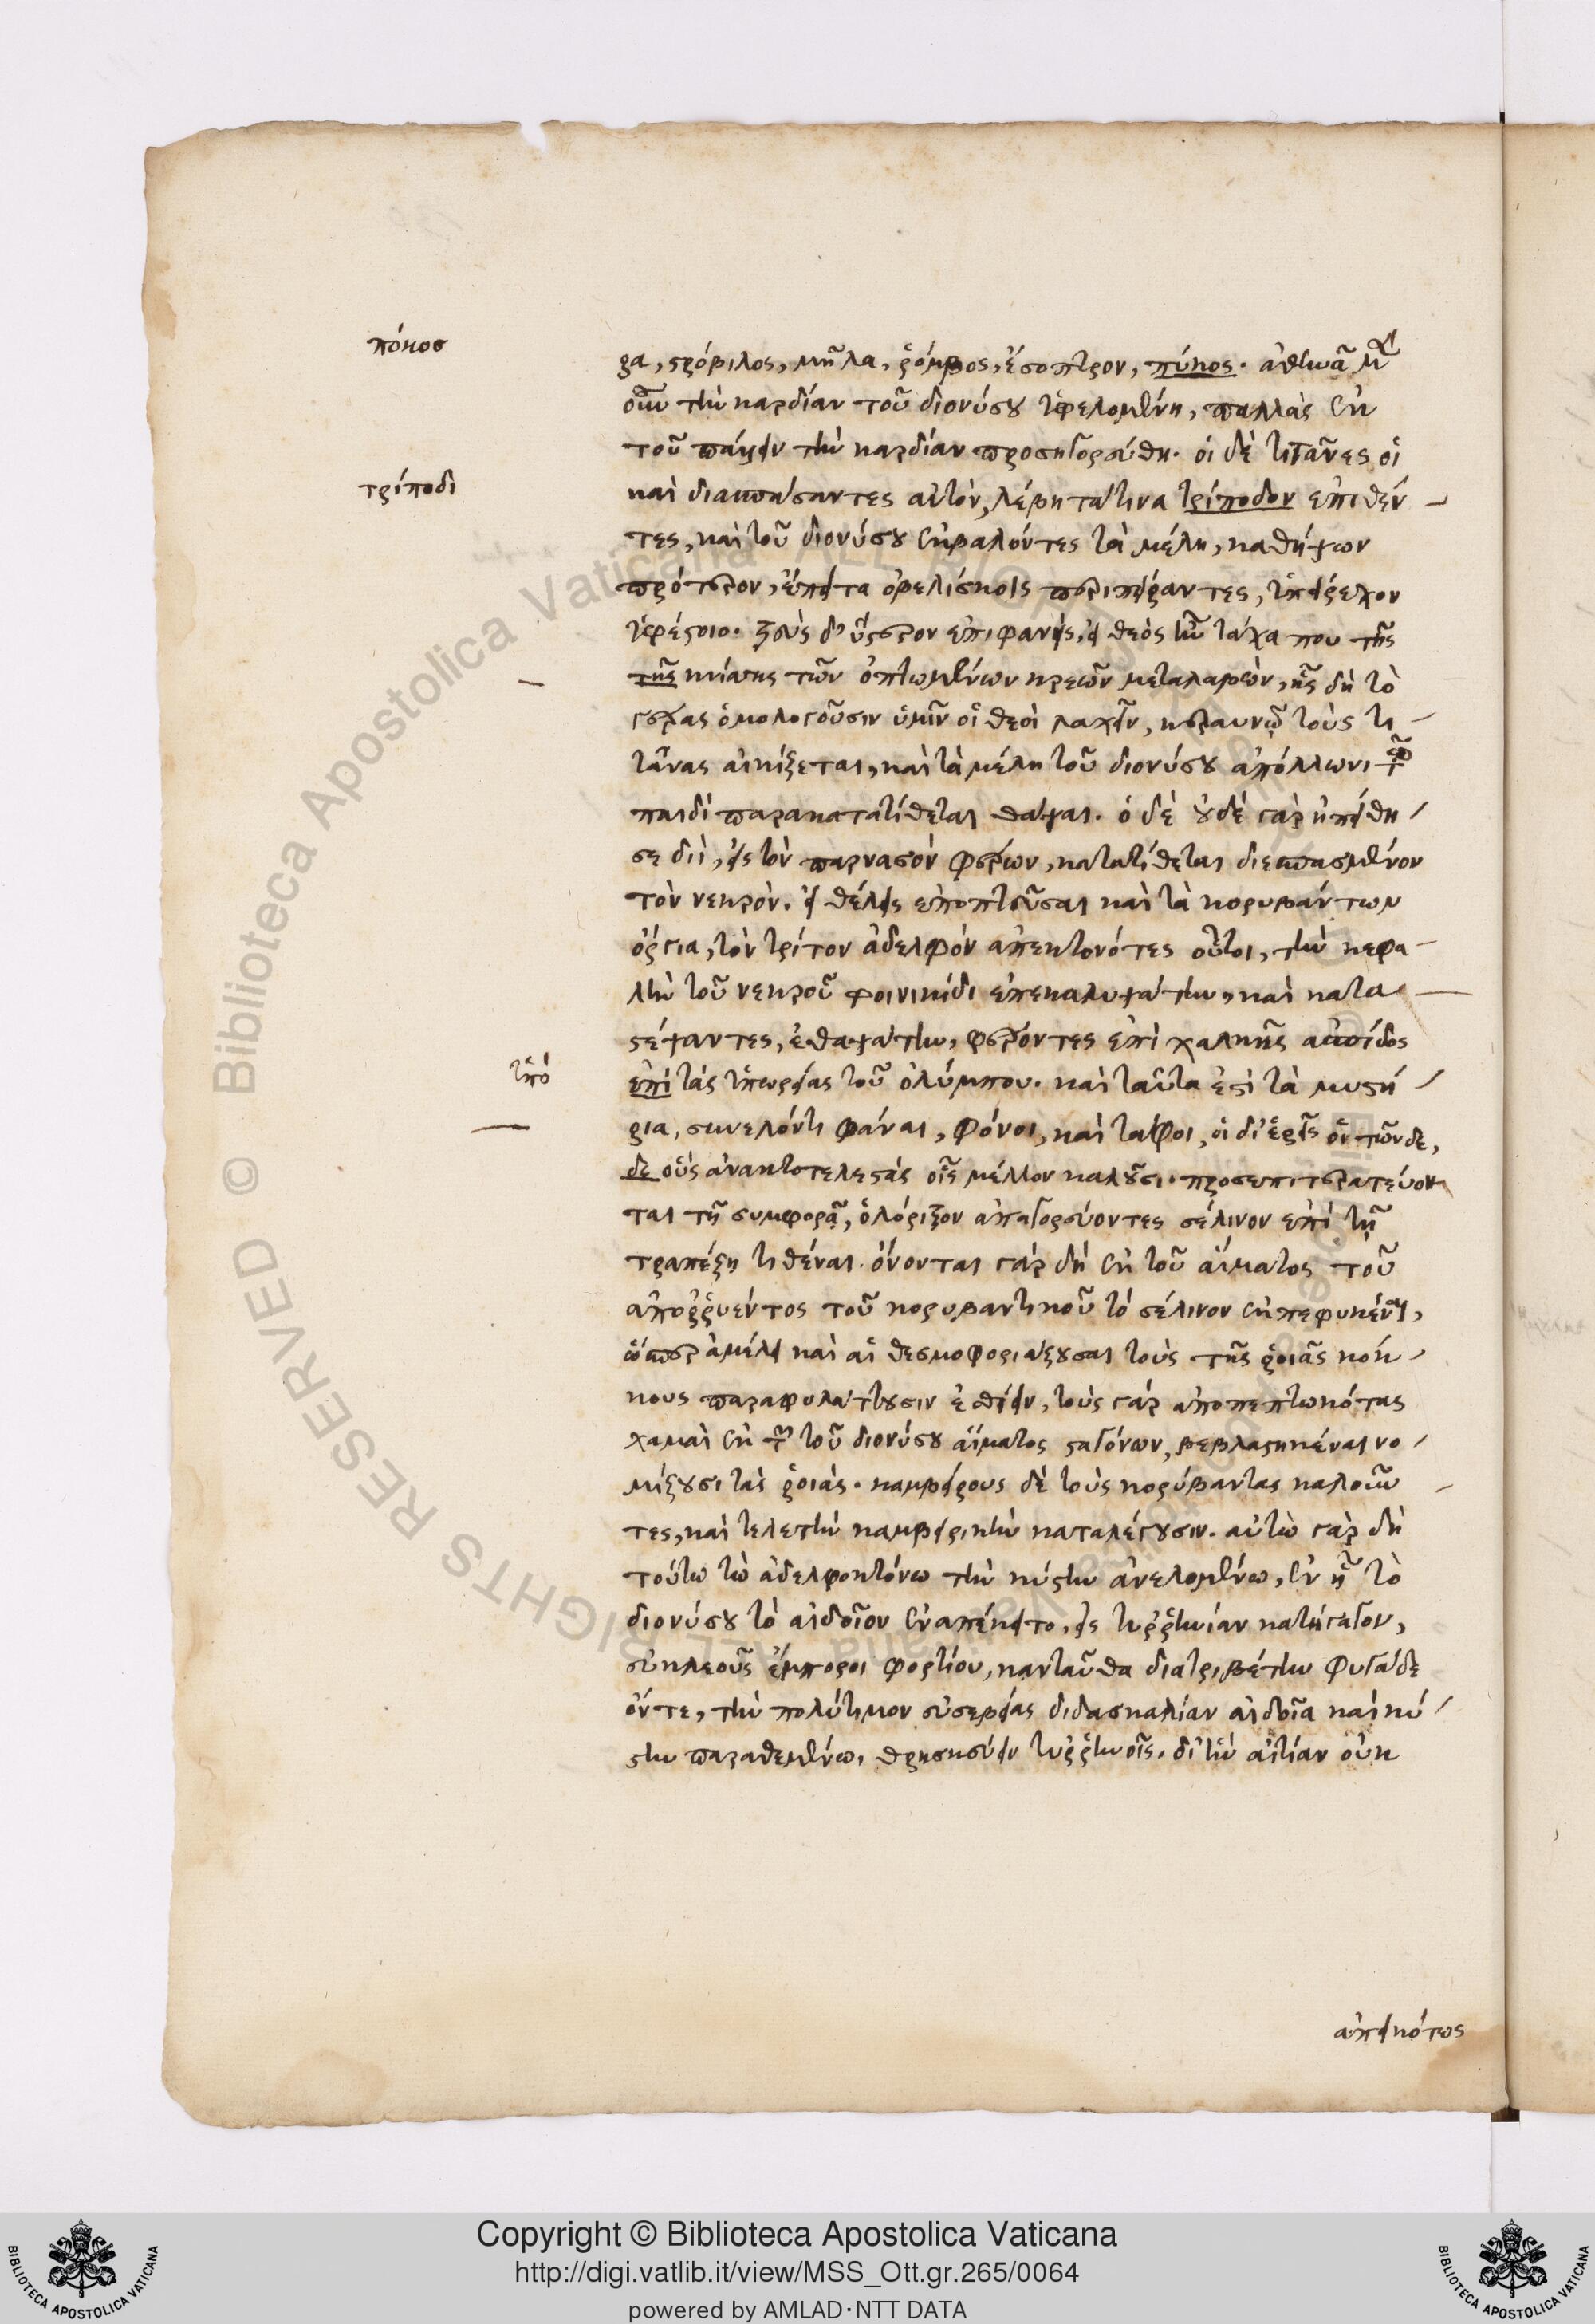 πόκος
ρα, στρόβιλος, μῆλα, ῥόμβος, ἔσοπτρον, πύκος. ἀθηνᾶ μὲν
οὖν τὴν καρδίαν τοῦ διονύσου ὑφελομένη, παλλὰς ἐκ
τοῦ πάλλειν τὴν καρδίαν προσηγορεύθη. οἱ δὲ τιτᾶνες οἱ
τρίποδι
καὶ διασπάσαντες αὐτὸν, λέβητά τινα τρίποδον ἐπιθέν
τες, καὶ τοῦ διονύσου ἐμβαλόντες τὰ μέλη, καθήψουν
πρότερον, ἔπειτα ὀβελίσκοις περιπείραντες, ὑπείρεχον
ἡφαίστοιο. ζεὺς δ' ὕστερον ἐπιφανεὶς, εἰ θεὸς ἦν τάχα που τῆς
τῆς κνίσης τῶν ὀπτωμένων κρεῶν μεταλαβὼν, ἧς δὴ τὸ
γέρας ὁμολογοῦσιν ὑμῖν οἱ θεοὶ λαχεῖν, κεραυνῷ τοὺς τι
τᾶνας αἰκίζεται, καὶ τὰ μέλη τοῦ διονύσου ἀπόλλωνι τῷ
παιδὶ παρακατατίθεται θάψαι. ὁ δὲ οὐδὲ γὰρ ἠπείθη
σε διὶ, εἰς τὸν παρνασὸν φέρων, κατατίθεται διεσπασμένον
τὸν νεκρὸν. εἰ θέλεις ἐποπτεῦσαι καὶ τὰ κορυβάντων
ὄργια, τὸν τρίτον ἀδελφὸν ἀπεκτονότες οὗτοι, τὴν κεφα
λὴν τοῦ νεκροῦ φοινικίδι ἐπεκαλυψάτην, καὶ κατα
στέψαντες, ἐθαψάτην, φέροντες ἐπὶ χαλκῆς ἀσπίδος
ὑπὸ
ἐπὶ τὰς ὑπωρείας τοῦ ὀλύμπου. καὶ ταῦτα ἐστὶ τὰ μυστή
ρια, συνελόντι φάναι, φόνοι, καὶ τάφοι, οἱ δὶ ἱερεῖς οἱ τῶν δε,
δε οὓς ἀνακτοτελεστὰς οἷς μέλλον καλοῦσι. προσεπιτερατεύον
ται τῇ συμφορᾷ, ὁλόριζον ἀπαγορεύοντες σέλινον ἐπὶ τῇ
τραπέζῃ τιθέναι. οἴονται γὰρ δὴ ἐκ τοῦ αἵματος τοῦ
ἀποῤῥυέντος τοῦ κορυβαντικοῦ τὸ σέλινον ἐκπεφυκέναι,
ὥσπερ ἀμέλει καὶ αἱ θεσμοφοριάζουσαι τοὺς τῆς ῥοιᾶς κόκ
κους παραφυλάττουσιν ἐσθίειν, τοὺς γὰρ ἀποπεπτωκότας
χαμαὶ ἐκ τῶν τοῦ διονύσου αἵματος σταγόνων, βεβλαστηκέναι νο
μίζουσι τὰς ῥοιάς. καμβείρους δὲ τοὺς κορύβαντας καλοῦν
τες, καὶ τελετὴν καμβειρικὴν καταλέγουσιν. αὐτὼ γὰρ δὴ
τούτω τὼ ἀδελφοκτόνω τὴν κίστην ἀνελομένω, ἐν ᾗ τὸ
διονύσου τὸ αἰδοῖον ἐναπέκειτο, εἰς τυῤῥηνίαν κατήγαγον,
εὐκλεοῦς ἔμποροι φορτίου, κανταῦθα διατριβέτην φυγάδε
ὄντε, τὴν πολύτιμον εὐσεβείας διδασκαλίαν αἰδοῖα καὶ κί
στην παραθεμένω, θρησκεύειν τυῤῥηνοῖς. δι' ἣν αἰτίαν οὐκ
ἀπεικότως
Copyright © Biblioteca Apostolica Vaticana
http://digi.vatlib.it/view/MSS_Ott.gr.265/0064
powered by AMLAD·NTT DATA